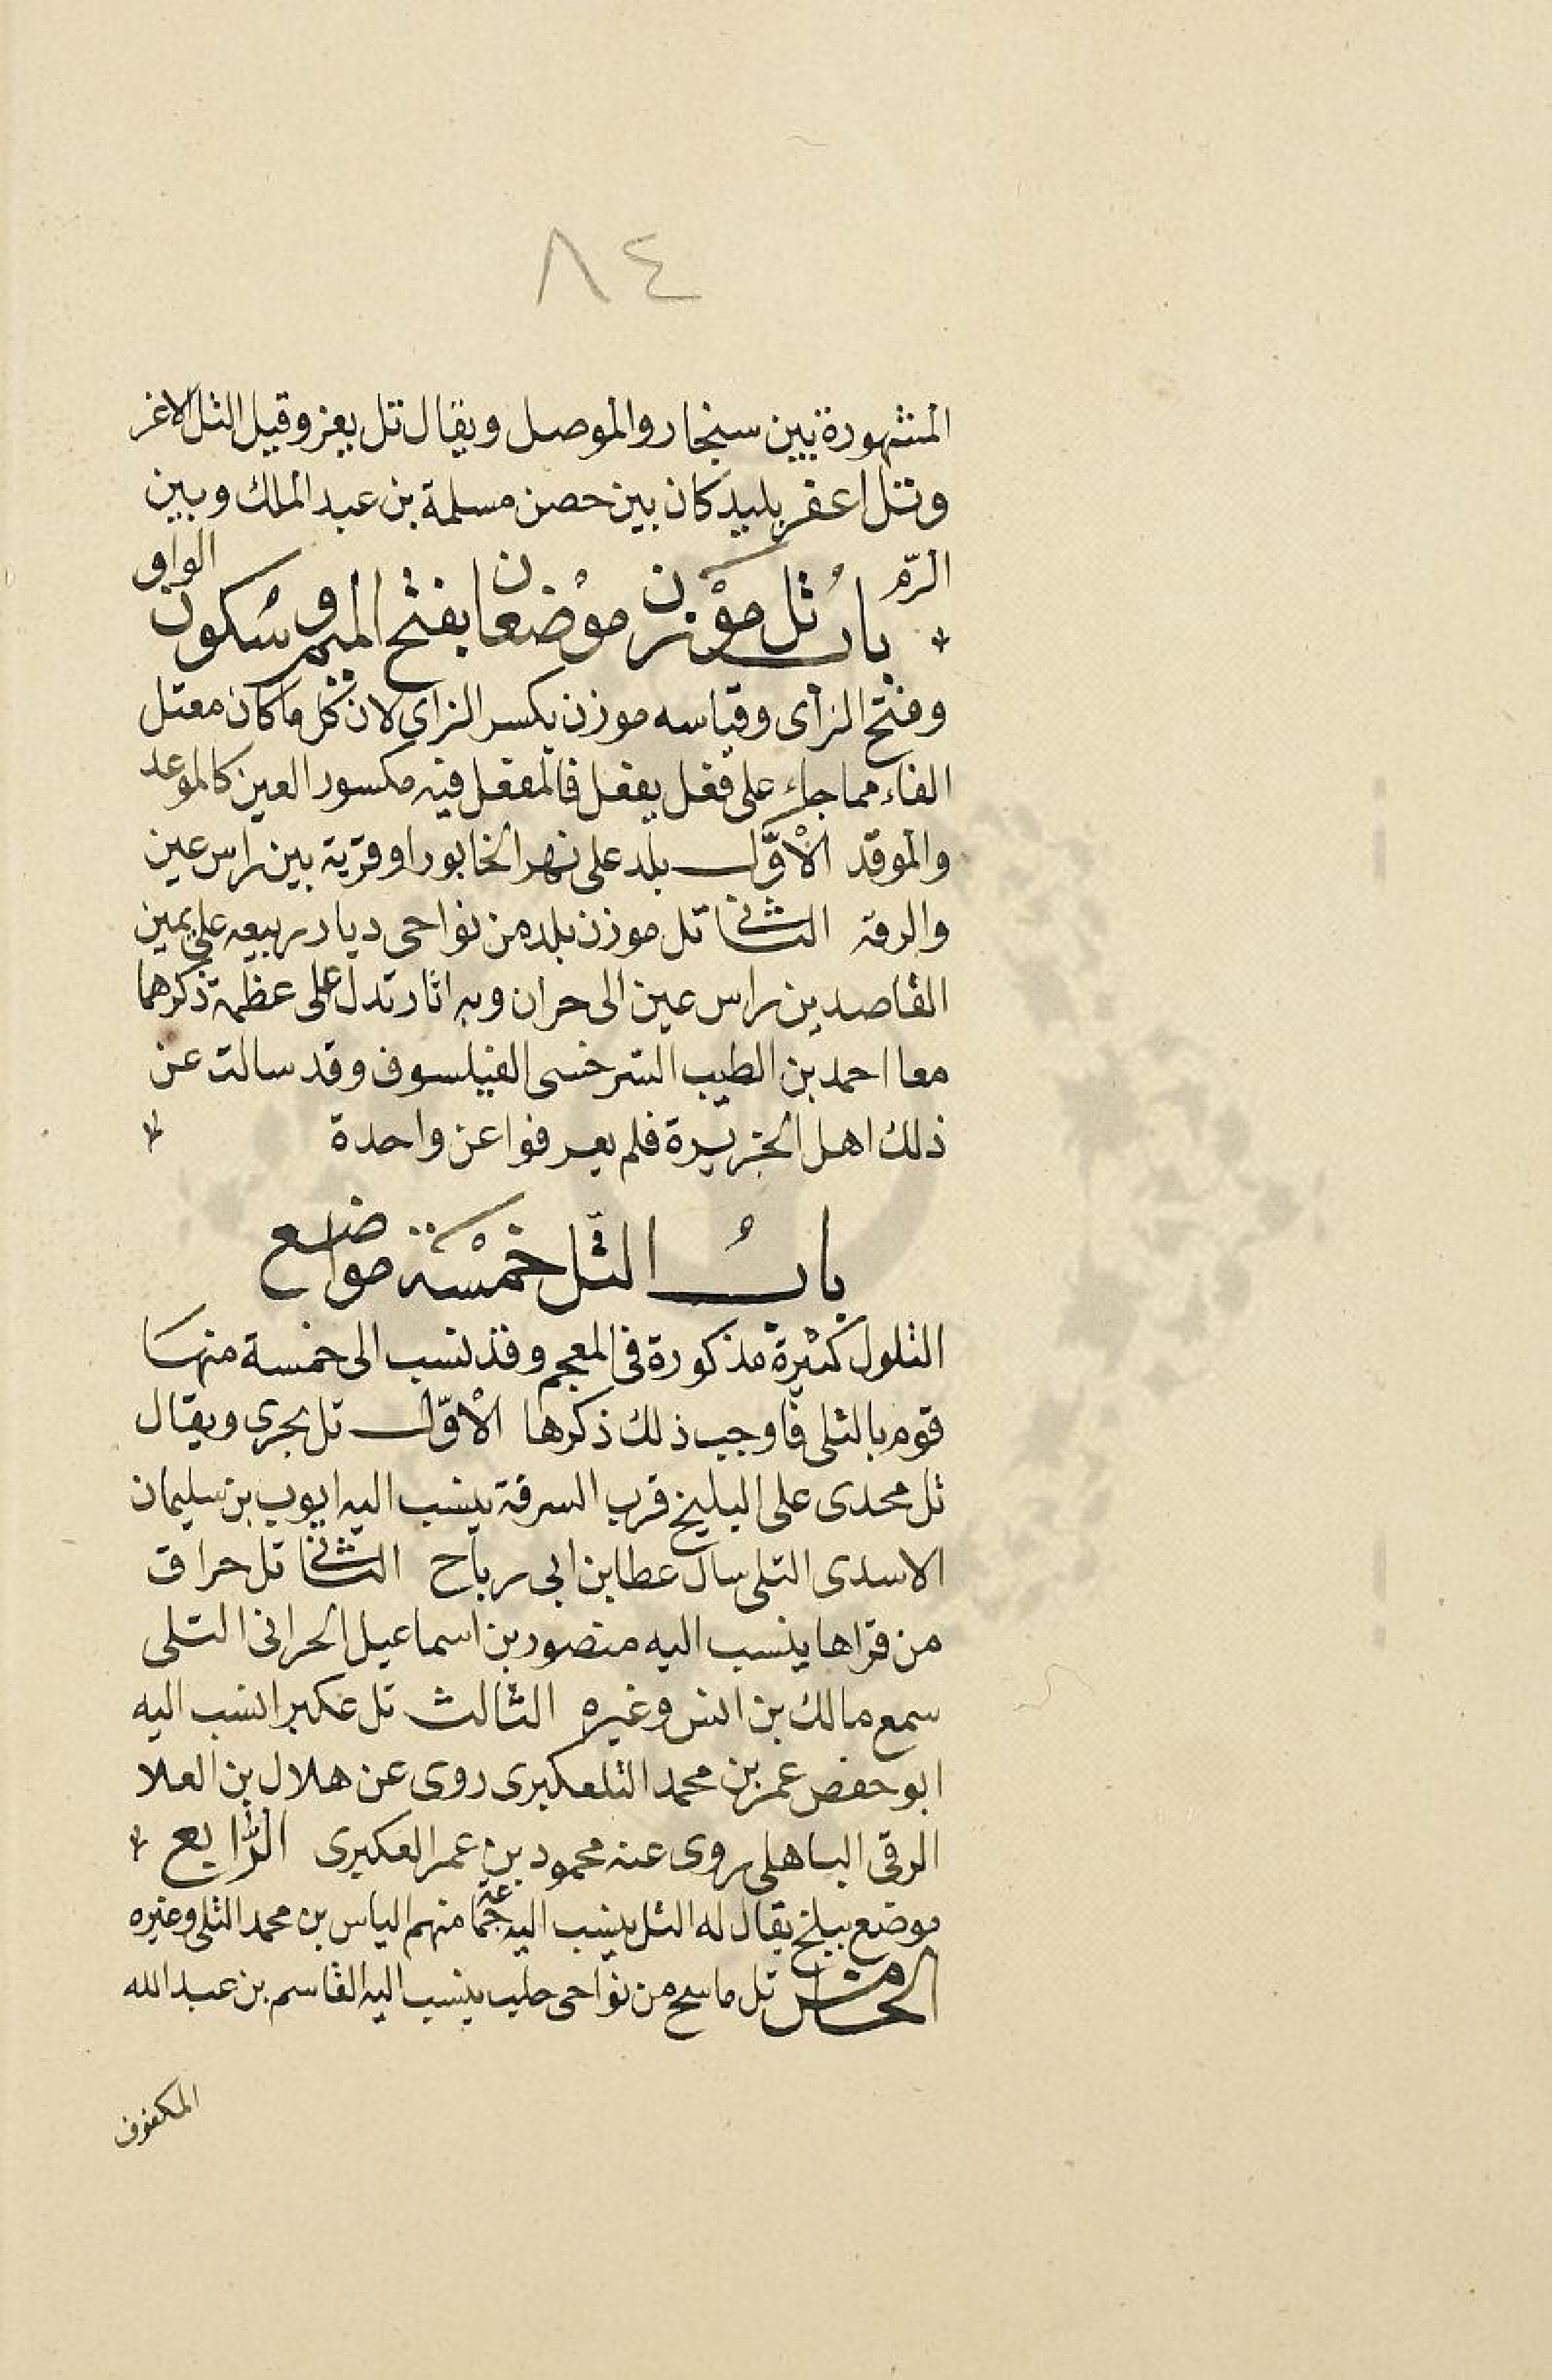 ٨٤
المشهورة بين سنجار والموصل ويقال تل يعفر وقيل التل الاغر
وتل اعفر بليد كان بين حصن مسلمة بن عبد الملك وبين
الرّم
باب تل موْزن موْضعان بفتح الميم وسكون الواو
وفتح الزاى وقياسه موزن بكسر الزاى لان كل ما كان معتل
الفاء مما جاء على فعل يفعل فالمفعل فيه مكسور العين كالموعد
والموقد الأوّل بلد على نهر الخابور او قرية بين راس عين
والرقة الثانى تل موزن بلد من نواحى ديار ربيعه على يمين
القاصد من راس عين الى حران وبه اثار تدل على عظمة ذكرهما
معا احمد بن الطيب السّرخسى الفيلسوف وقد سالت عن
ذلك اهل الجزيرة فلم يعرفوا عن واحدة
بابُ التّل خمْسَة مواضع
التلول كثيرة مذكورة فى المعجم وقد نسب الى خمسة منها
قوم بالتلى فاوجب ذلك ذكرها الأوّل تل بحرى ويقال
تل محدى على البليخ قرب السرقة ينسب اليه ايوب بن سليمان
الاسدى التلى سال عطا بن ابى رباح الثانى تل حراق
من قراها ينسب اليه منصور بن اسماعيل الحرانى التلى
سمع مالك بن انس وغيره الثالث تل عكبرا نسب اليه
ابو حفص عمر بن محمد التلعكبرى روى عن هلال بن العلا
الرقى الباهلى روى عنه محمود بن عمر العكبرى الرّابع
موضع ببلخ يقال له التل ينسب اليه جماعة منهم الياس بن محمد التلى وغيره
الخامس تل ماسح من نواحى حلب ينسب اليه القاسم بن عبد الله
المكفوف